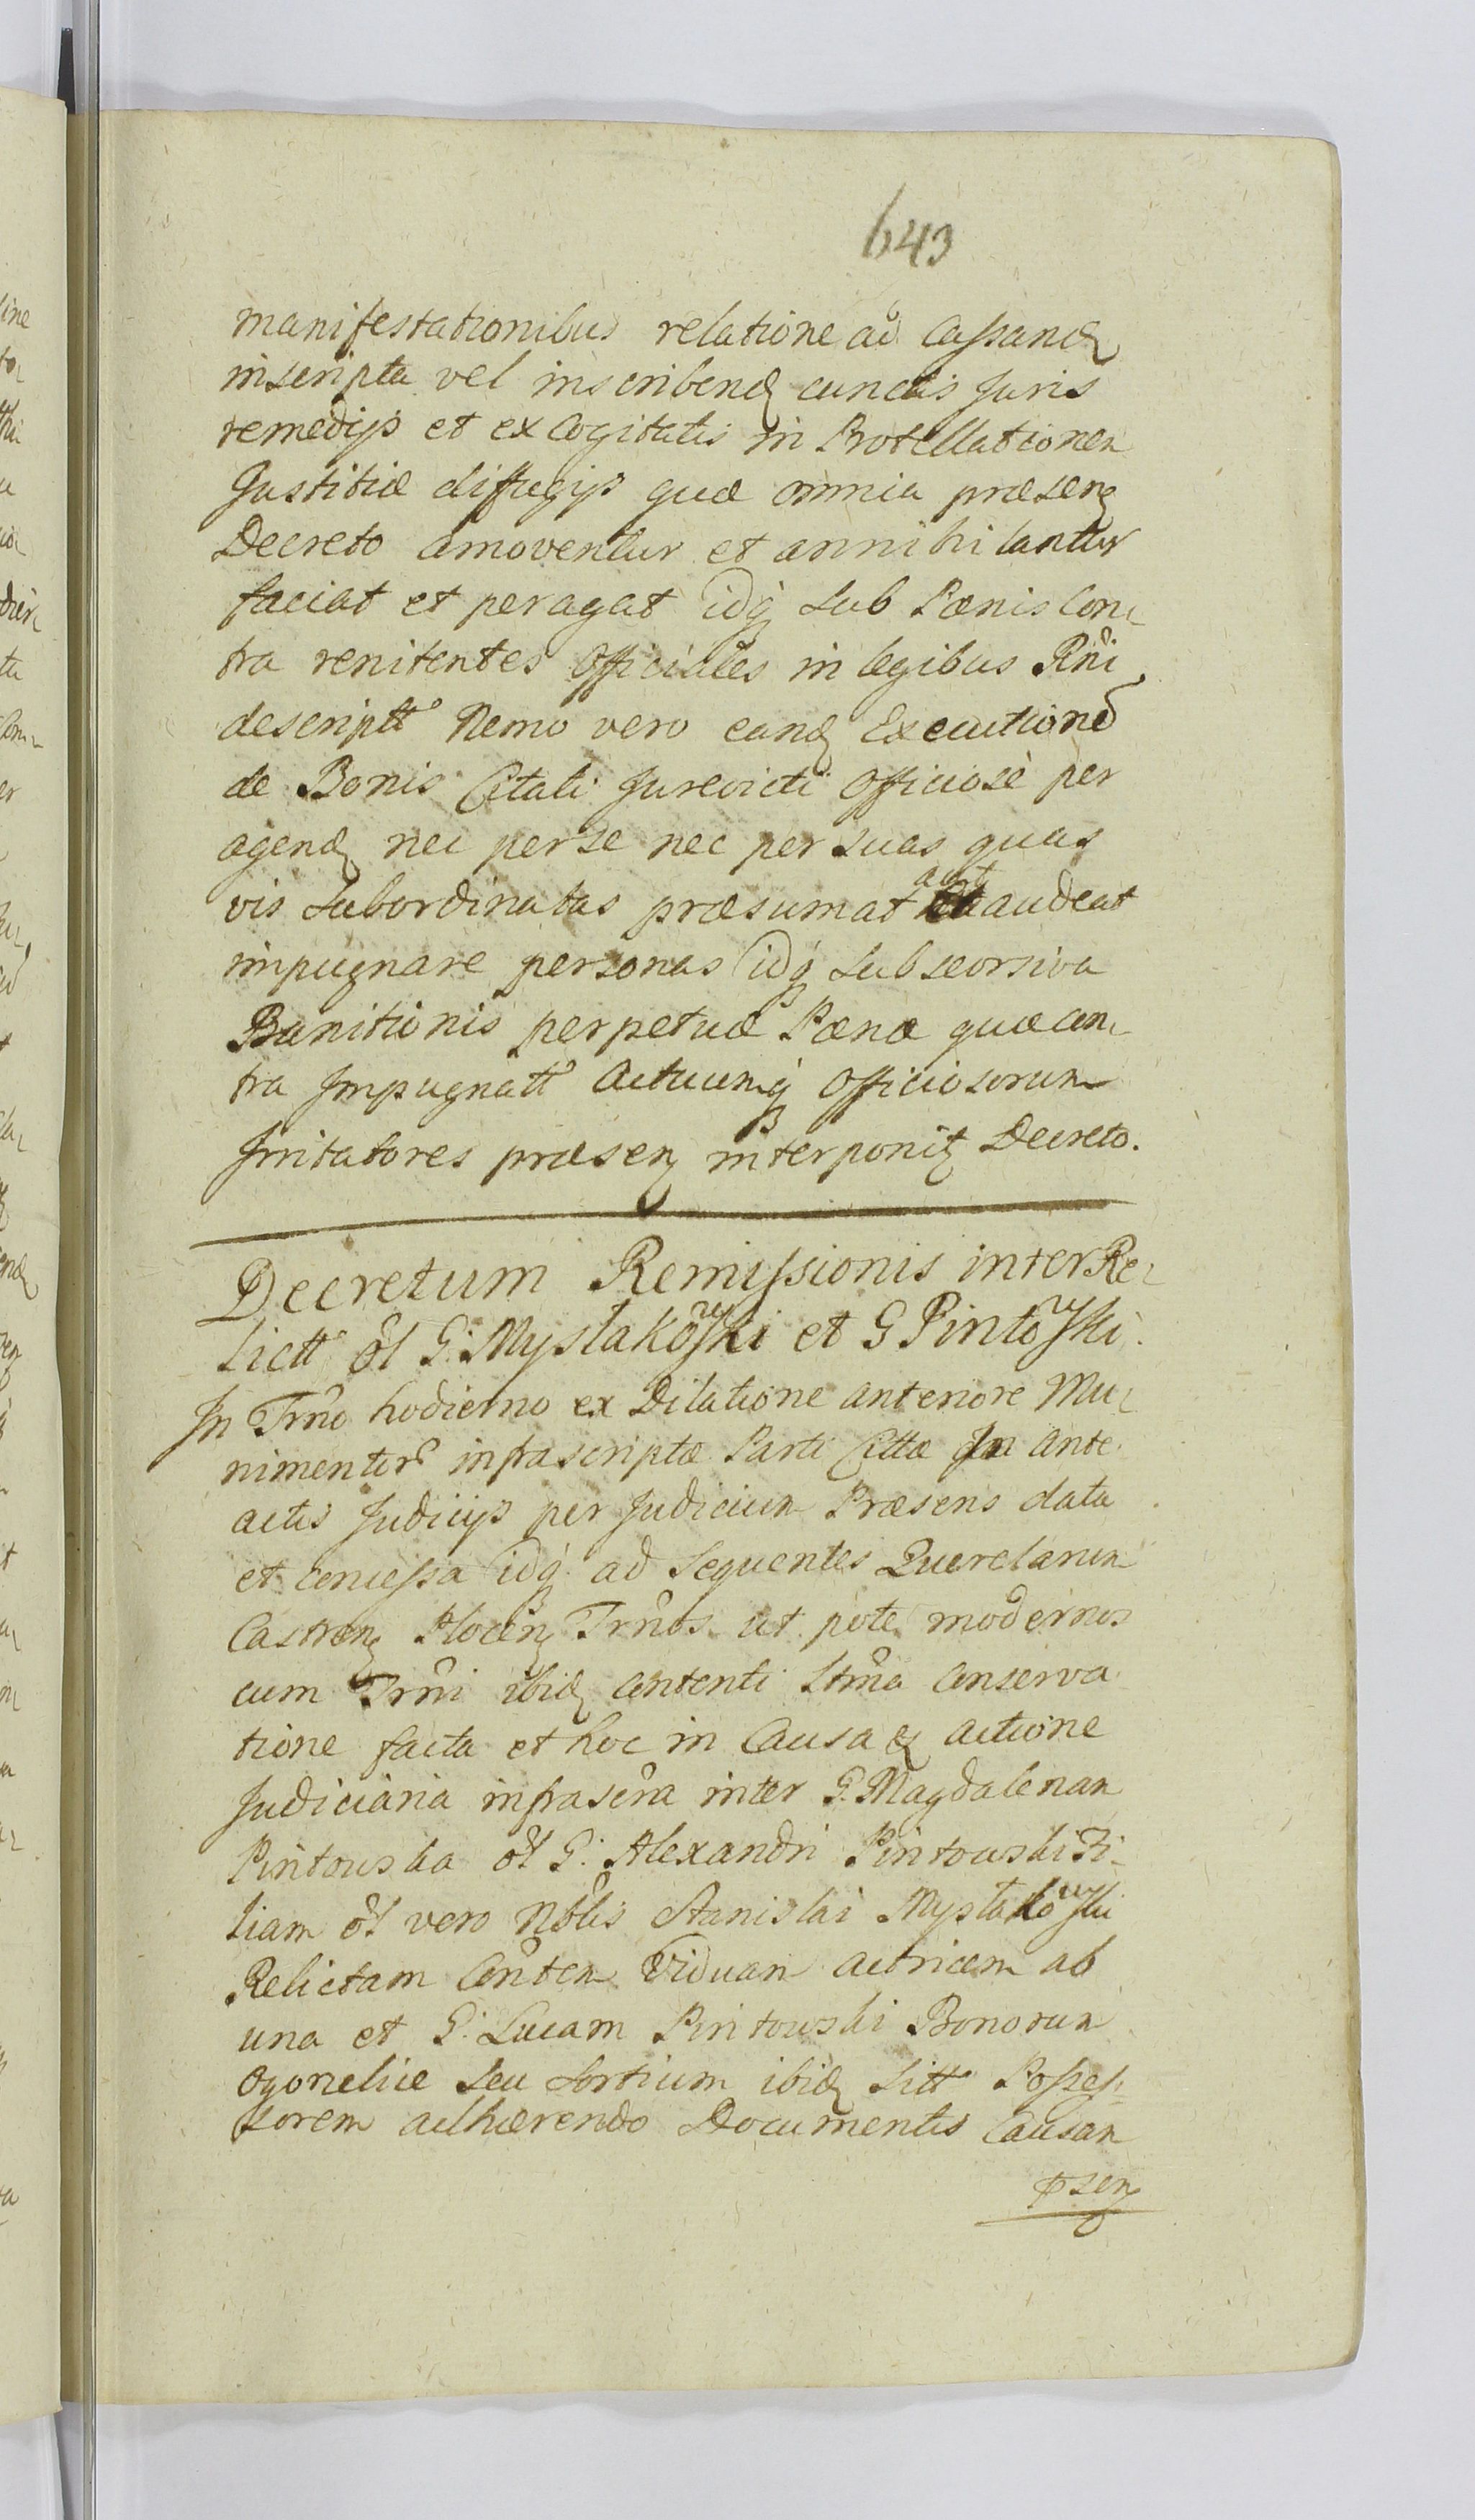 643
manifestationibus relatione ad Cassand
inscripta vel inscribend cunctis Juris
remedijs et excogitatis in Protellationem
Justitiæ diffugijs quæ omnia præsen
Decreto amoventur et annihilantur
faciat et peragat idq sub Pænis Con
tra renitentes Officiales in legibus Rni
descriptt Nemo vero eand Executione
de Bonis Citati Jurevicti Officiose per
agend nec per se nec per suas quas
vis subordinatas præsumat aut audeat
impugnare personas idq sub seorsiva
Banitionis perpetuæ Pæna quæ con
tra Impugnatt Actuumq Officiosorum
Irritatores præsen interponit Decreto.
Decretum Remissionis inter Re
lictt ol G: Mystakowski et G Pintowski.
In Trno hodierno ex Dilatione anteriore Mu
nimentor infrascriptæ Parti Cittæ In ante
actis Judicijs per Judicium Præsens data
et concessa idq ad sequentes Querelarum
Castren Plocen Trnos ut pote modernos
cum Trni ibid contenti ltma conserva
tione facta et hoc in Causa & actione
Judiciaria infrascra inter G. Magdalenam
Pintowska ol G: Alexandri Pintowski Fi
liam ol vero Nblis Stanislai Mystakowski
Relictam Consten Viduam actricem ab
una et G: Lucam Pintowski Bonorum
Ogonelice seu Sortium ibid sitt Posses
sorem adhærendo Documentis Causam
præsen